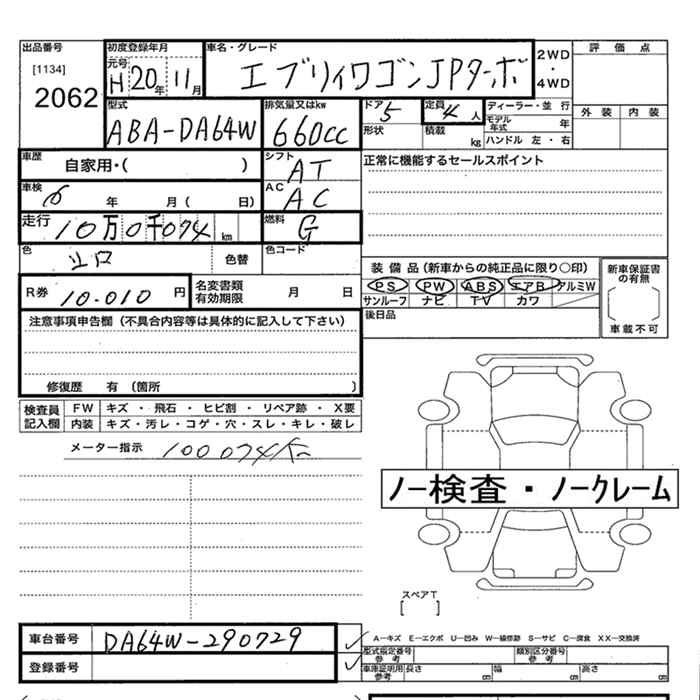 出品番号 初度登録年月 車名・グレード 評価点
[1134] 元号 H20年 11月 エブリィワゴンJPターボ 2WD・4WD
2062
型式 排気量又はkw ドア 定員 ディーラー・並行 外装 内装
ABA-DA64W 660cc 5 4人 モデル年式 年
形状 積載 kg ハンドル 左・右
車歴 自家用・( ) シフト AT 正常に機能するセールスポイント
車検 年 月( 日) AC AC
走行 10万0千074 km 燃料 G
色 色替 色コード
装備品(新車からの純正品に限り○印) 新車保証書の有無
R券 10.010円 名変書類有効期限 月 日 PS PW ABS エアB アルミW
サンルーフ ナビ TV カワ
注意事項申告欄(不具合内容等は具体的に記入して下さい) 後日品 車載不可
修復歴 有(箇所 )
検査員記入欄 FW キズ・飛石・ヒビ割・リペア跡・X要
内装 キズ・汚レ・コゲ・穴・スレ・キレ・破レ
メーター指示 100074K
ノー検査・ノークレーム
スペアT
[ ]
車台番号 DA64W-290729 A―キズ E―エクボ U―凹み W―補修跡 S―サビ C―腐食 XX―交換済
型式指定番号 参考 類別区分番号 参考
登録番号 車庫証明用 参考 長さ cm 幅 cm 高さ cm